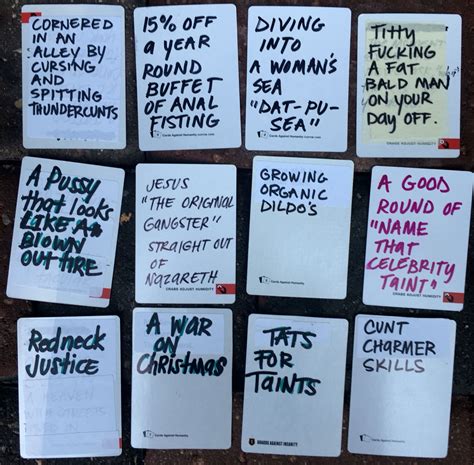 CORNERED
IN AN
ALLEY BY
CURSING
AND
SPITTING
THUNDERCUNTS
15% OFF
a YEAR
ROUND
BUFFET
OF ANAL
FISTING
Cards Against Humanity
DIVING
INTO
A WOMAN'S
SEA
"DAT-PU-
SEA"
Cards Against Humanity
TITTY
FUCKING
A FAT
BALD MAN
ON YOUR
DAY OFF.
CRABS ADJUST HUMIDITY
A PUSSY
that looks
LIKE A
BLOWN
OUT TIRE
JESUS
"THE ORIGINAL
GANGSTER"
STRAIGHT OUT
OF
NAZARETH
CRABS ADJUST HUMIDITY
GROWING
ORGANIC
DILDO'S
Cards Against Humanity
A GOOD
ROUND OF
"NAME
THAT
CELEBRITY
TAINT"
CRABS ADJUST HUMIDITY
Redneck
JUSTICE
A HEAVEN
WITH STREETS
A WAR
ON
CHRISTMAS
Cards Against Humanity
TATS
FOR
TAINTS
CUNT
CHARMER
SKILLS
Cards Against Humanity